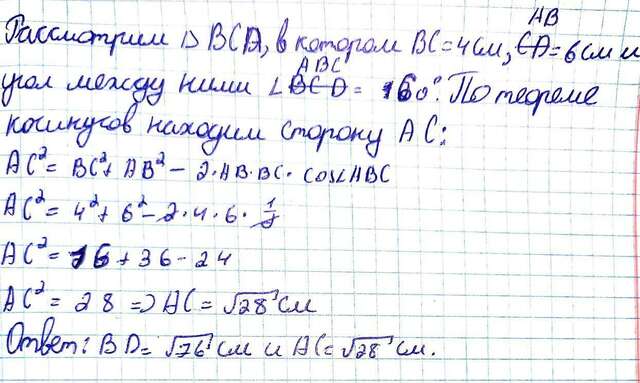 AB
Рассмотрим △ BCA, в котором BC=4см, CD=6см и
ABC
угол между ними ∠ BCD = 60°. По теореме
косинусов находим сторону AC:
AC² = BC² + AB² - 2·AB·BC·cos∠ABC
AC² = 4² + 6² - 2·4·6·1/2
AC² = 16 + 36 - 24
AC² = 28 => AC = √28 см
Ответ: BD = √76 см и AC = √28 см.